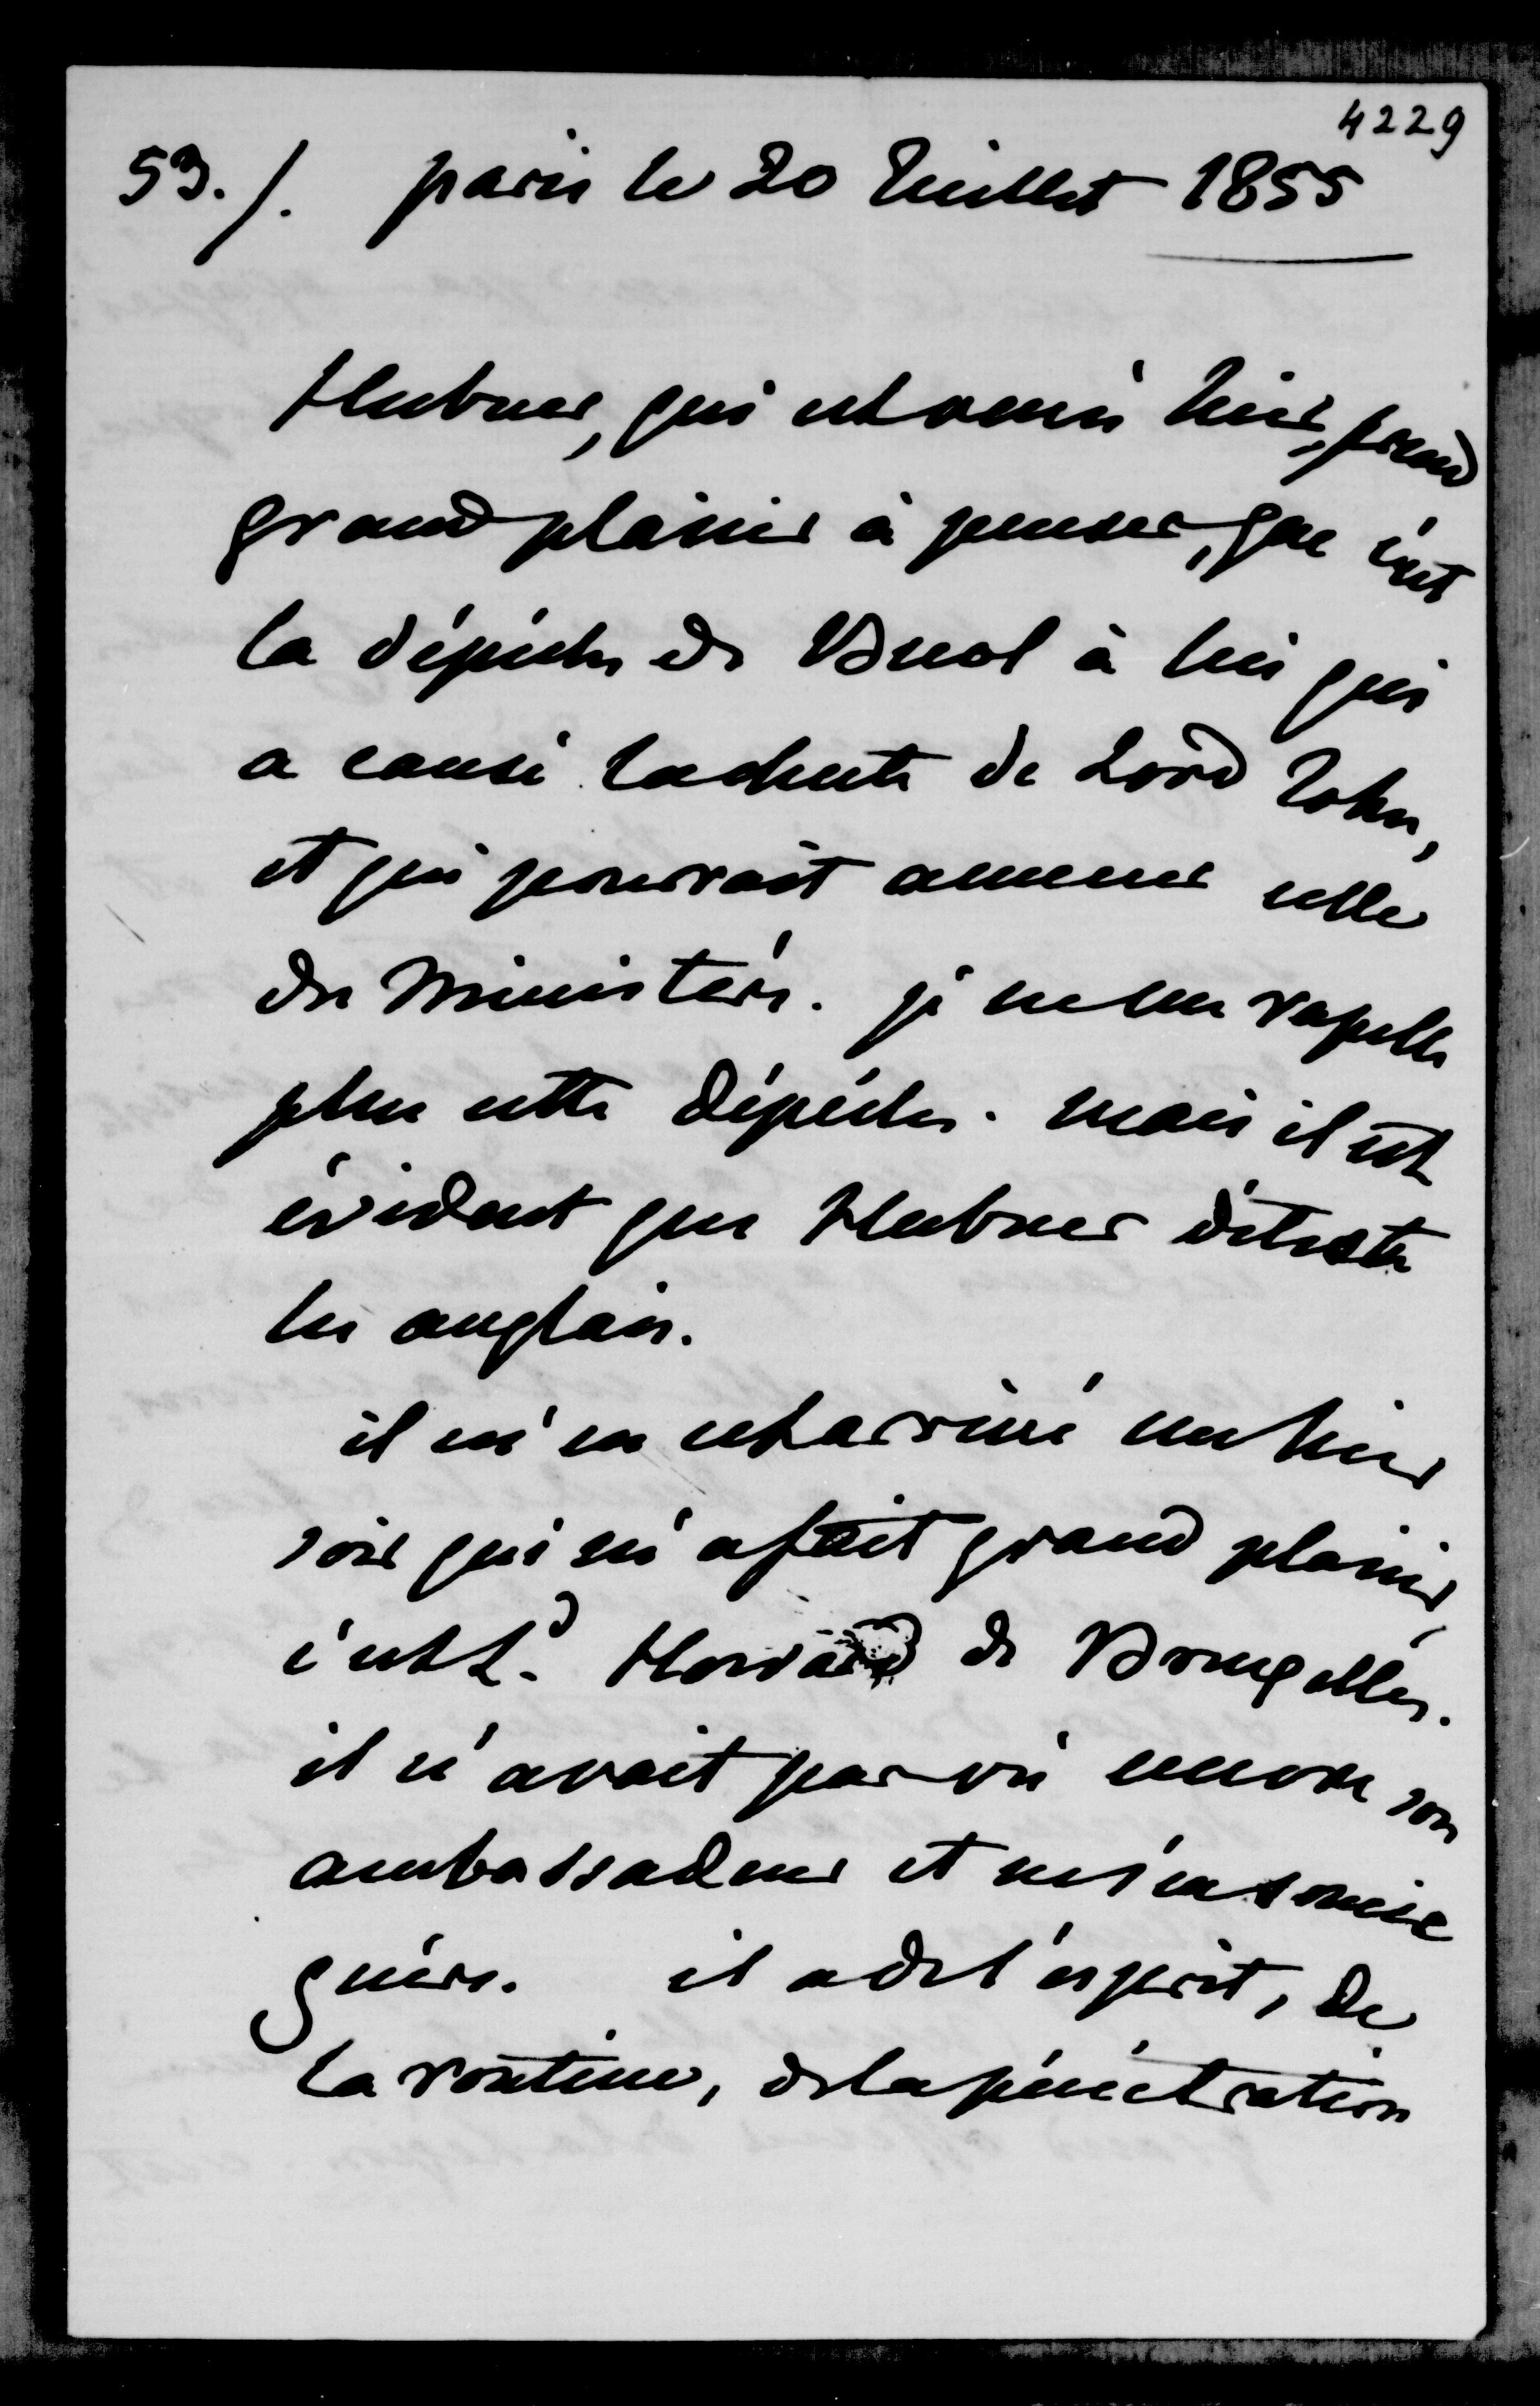 4229
53./. paris le 20 Juillet 1855
Hubner, qui est venu hier, prend
grand plaisir à penser, que c'est
la dépéche de Buol à lui qui
a causé la chute de Lord John,
et qui pourrait amener celle
du Ministère. je ne me rapelle
plus cette dépéche. mais il est
évident que Hubner déteste
les anglais.
il m'en est arrivé un hier
soir qui m'a fait grand plaisir,
c'est Ld. Howard de Brugelles.
il n'avait pas vu encore son
ambassadeur et ne s'en soucie
guère. il a de l'esprit, de
la routine, de la pénétration